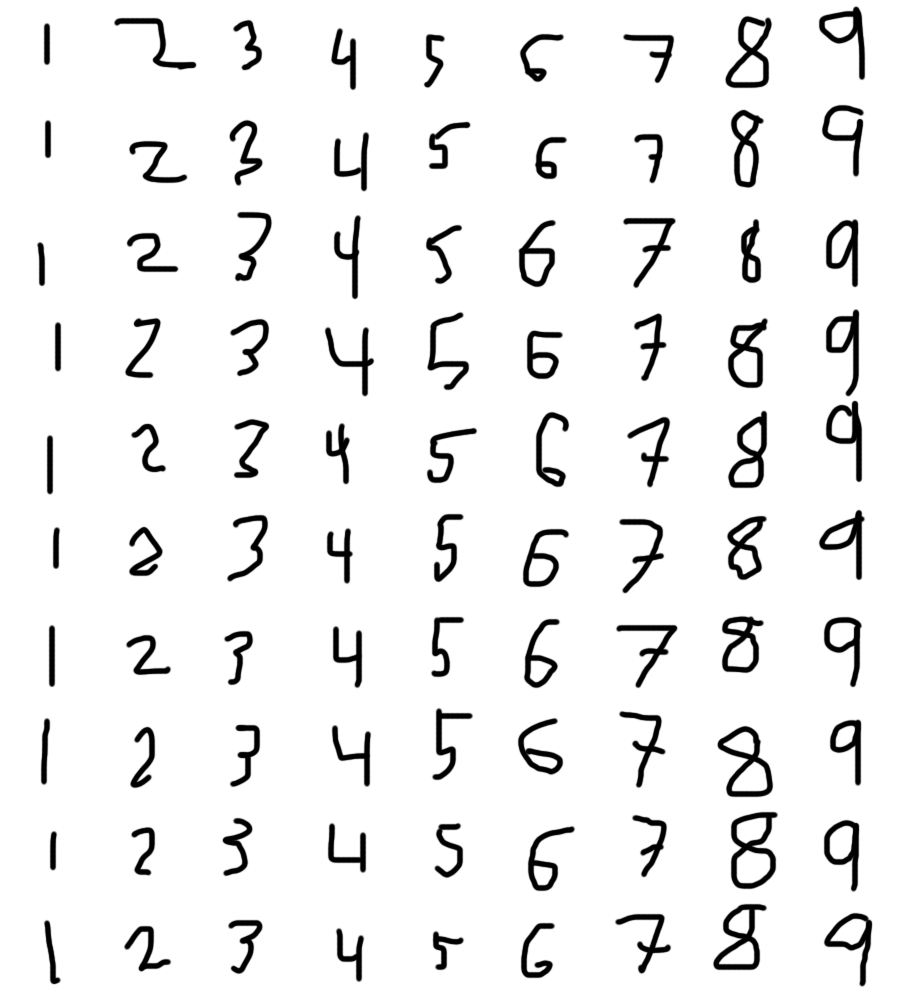 1 2 3 4 5 6 7 8 9
1 2 3 4 5 6 7 8 9
1 2 3 4 5 6 7 8 9
1 2 3 4 5 6 7 8 9
1 2 3 4 5 6 7 8 9
1 2 3 4 5 6 7 8 9
1 2 3 4 5 6 7 8 9
1 2 3 4 5 6 7 8 9
1 2 3 4 5 6 7 8 9
1 2 3 4 5 6 7 8 9